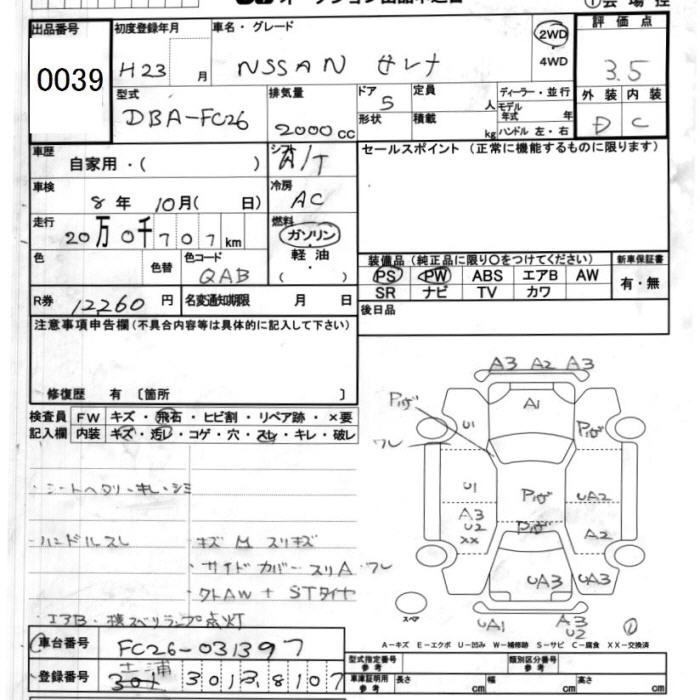 出品番号 初度登録年月 車名・グレード 2WD 評価点
0039 H23 月 NSSAN セレナ 4WD 3.5
型式 排気量 ドア 定員 ディーラー・並行 外装 内装
DBA-FC26 2000cc 5 人 モデル年式 年 D C
形状 積載 kg ハンドル 左・右
車歴 自家用・( ) シフト A/T セールスポイント (正常に機能するものに限ります)
車検 8年 10月( 日) 冷房 AC
走行 20万0千707km 燃料 ガソリン
軽油
( )
色 色替 色コード QAB
装備品 (純正品に限り○をつけてください) 新車保証書
PS PW ABS エアB AW 有・無
SR ナビ TV カワ
R券 12260円 名変通知期限 月 日
後日品
注意事項申告欄(不具合内容等は具体的に記入して下さい)
修復歴 有 〔箇所 〕
検査員 FW キズ・飛石・ヒビ割・リペア跡・×要
記入欄 内装 キズ・汚レ・コゲ・穴・スレ・キレ・破レ
A3 A2 A3
A1
Pハゲ
U1 Pハゲ
ワレ
U1 Pハゲ UA2
A3 U2 XX Pハゲ A2
UA3 UA3
UA1 A3 U2
スペア
・シートヘタリ・キレ・シミ
・ハンドルスレ ・キズ M スリキズ
・サイドカバースリA・ワレ
・クトAW + STタイヤ
・エアB・横スベリランプ点灯
A-キズ E-エクボ U-凹み W-補修跡 S-サビ C-腐食 XX-交換済
車台番号 FC26-031397
型式指定番号 参考 類別区分番号 参考
登録番号 土浦 301 301 3 8107
車庫証明用 参考 長さ cm 幅 cm 高さ cm